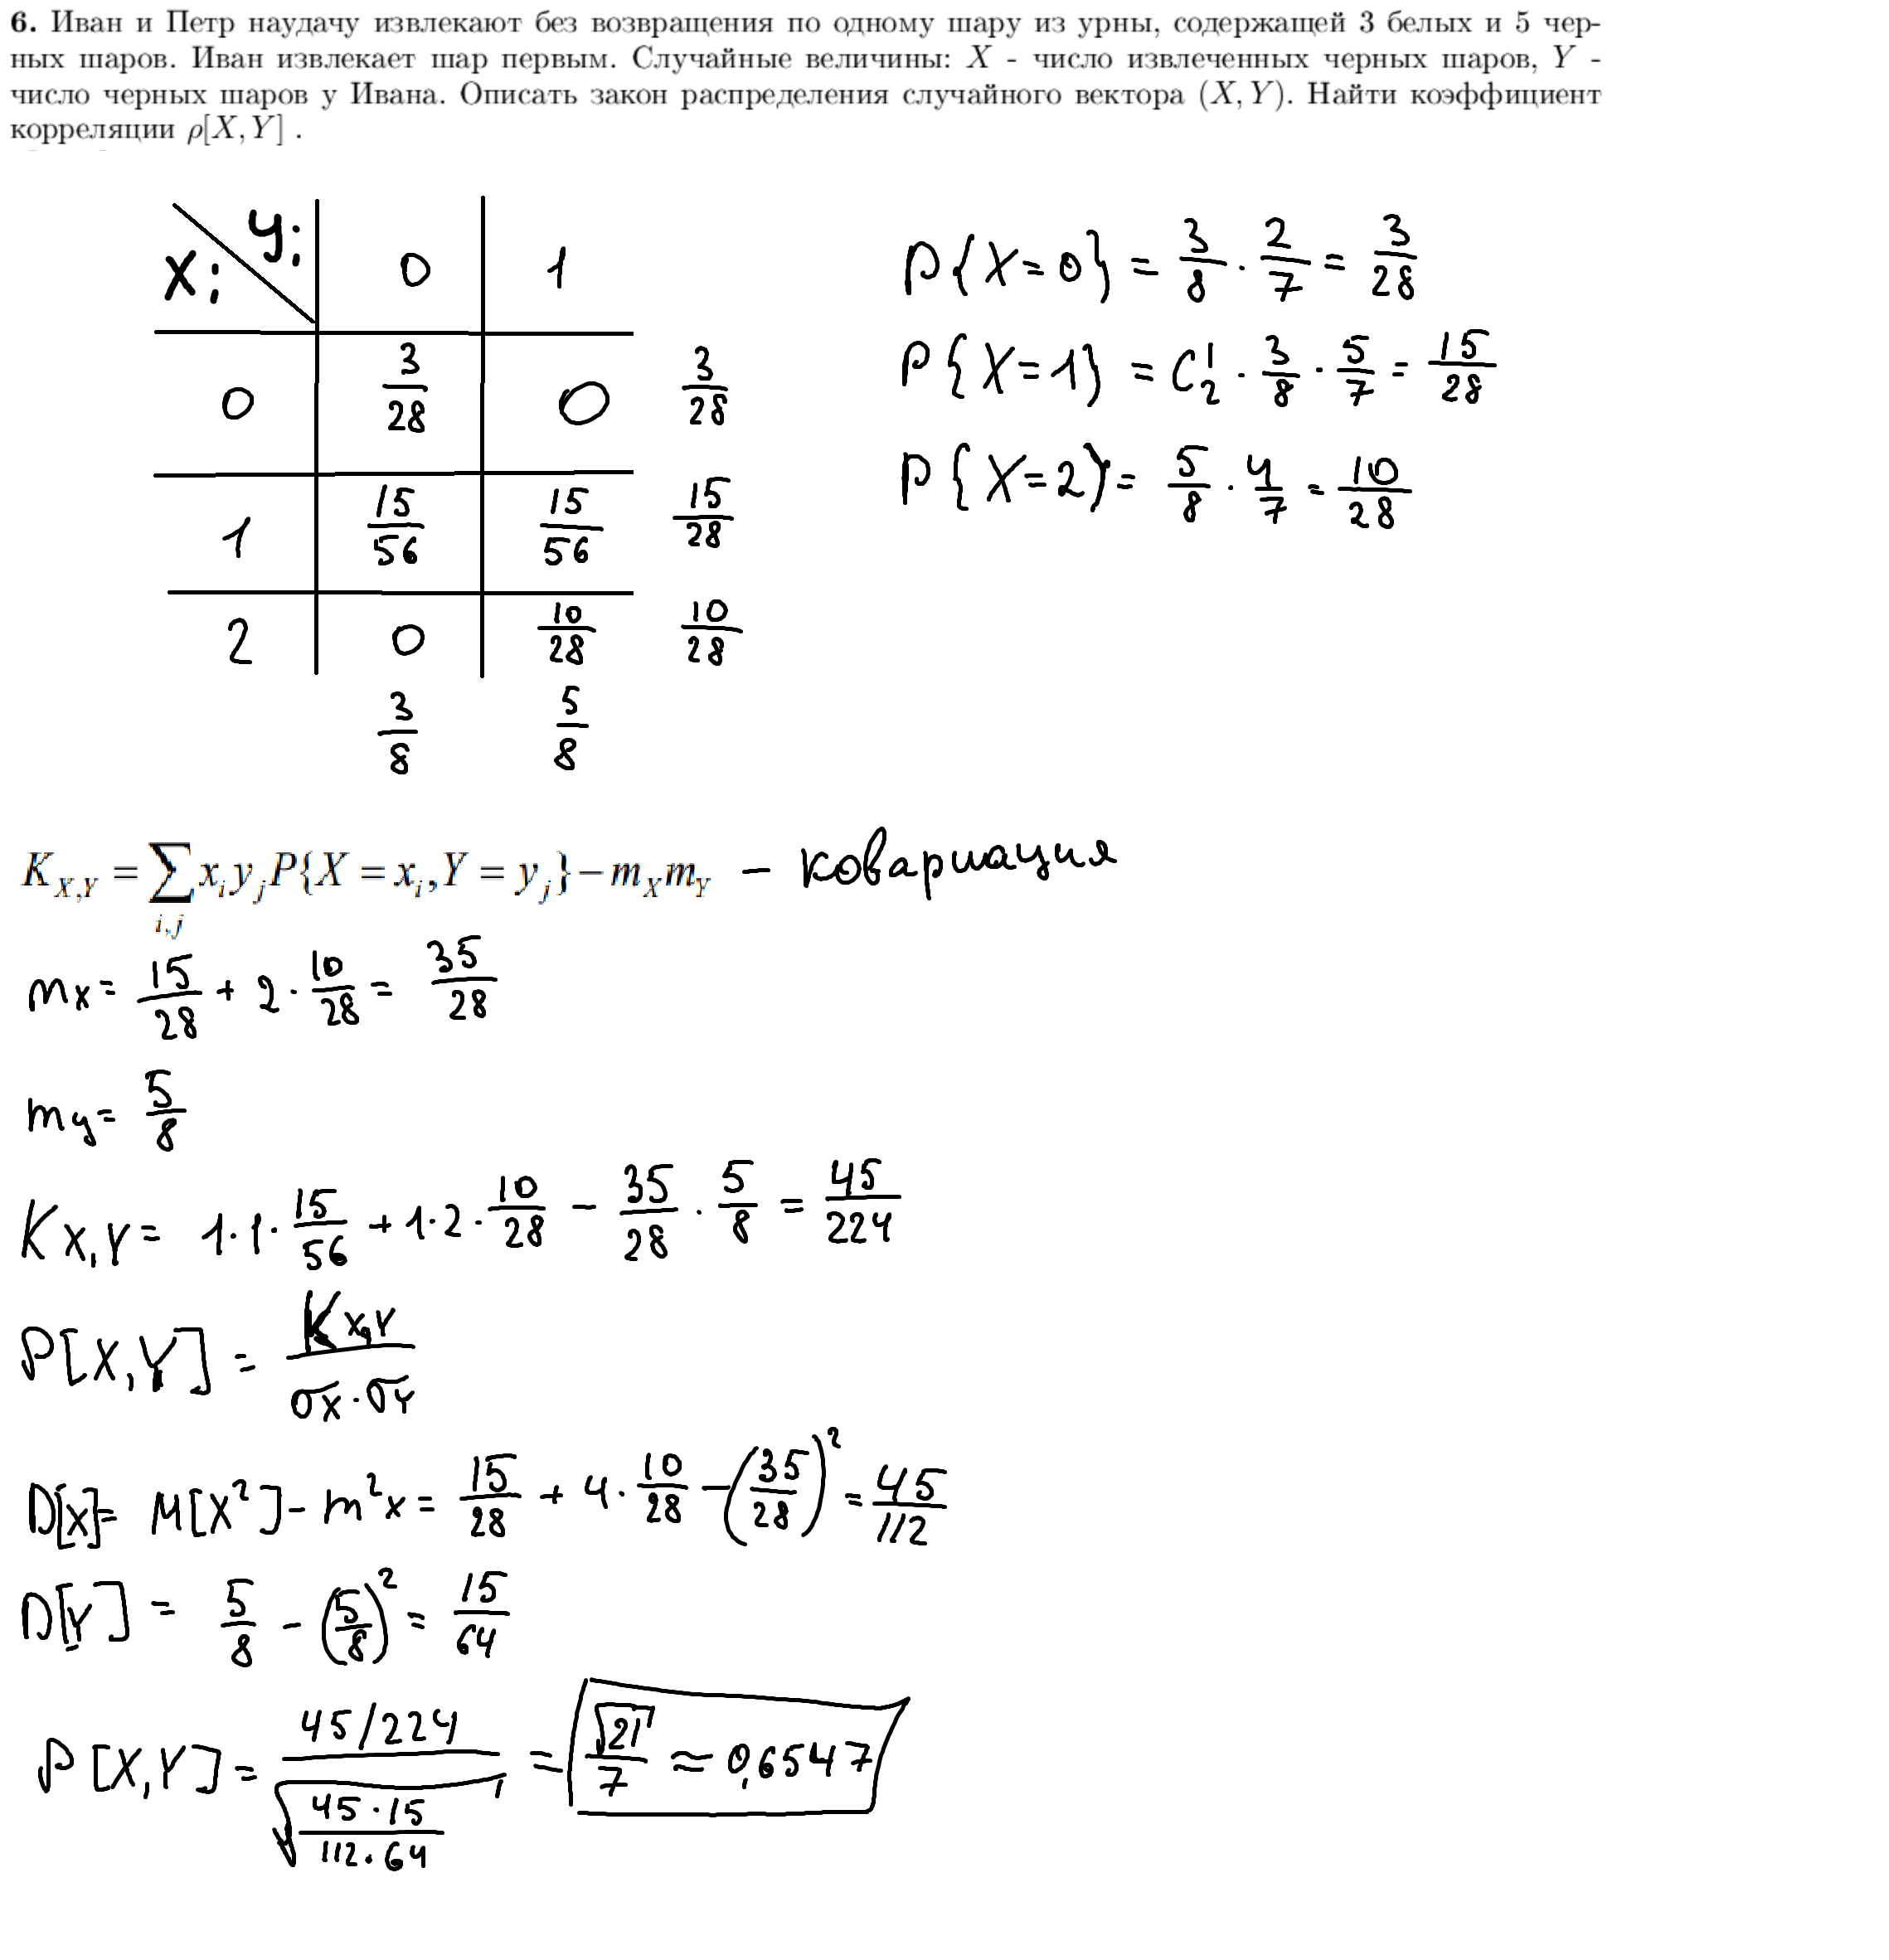 6. Иван и Петр наудачу извлекают без возвращения по одному шару из урны, содержащей 3 белых и 5 чер-
ных шаров. Иван извлекает шар первым. Случайные величины: X - число извлеченных черных шаров, Y -
число черных шаров у Ивана. Описать закон распределения случайного вектора (X, Y). Найти коэффициент
корреляции ρ[X, Y] .
xi \ yi | 0 | 1
0 | 3/28 | 0 | 3/28
1 | 15/56 | 15/56 | 15/28
2 | 0 | 10/28 | 10/28
3/8 | 5/8
P{X=0} = 3/8 · 2/7 = 3/28
P{X=1} = C₂¹ · 3/8 · 5/7 = 15/28
P{X=2} = 5/8 · 4/7 = 10/28
K_{X,Y} = ∑_{i,j} x_i y_j P{X = x_i, Y = y_j} − m_X m_Y – ковариация
mx = 15/28 + 2 · 10/28 = 35/28
my = 5/8
Kx,y = 1·1· 15/56 + 1·2· 10/28 − 35/28 · 5/8 = 45/224
ρ[X,Y] = Kx,y / (σx · σy)
D[x] = M[X²] − m²x = 15/28 + 4 · 10/28 − (35/28)² = 45/112
D[Y] = 5/8 − (5/8)² = 15/64
ρ[X,Y] = (45/224) / √(45·15 / 112·64) = √21/7 ≈ 0,6547